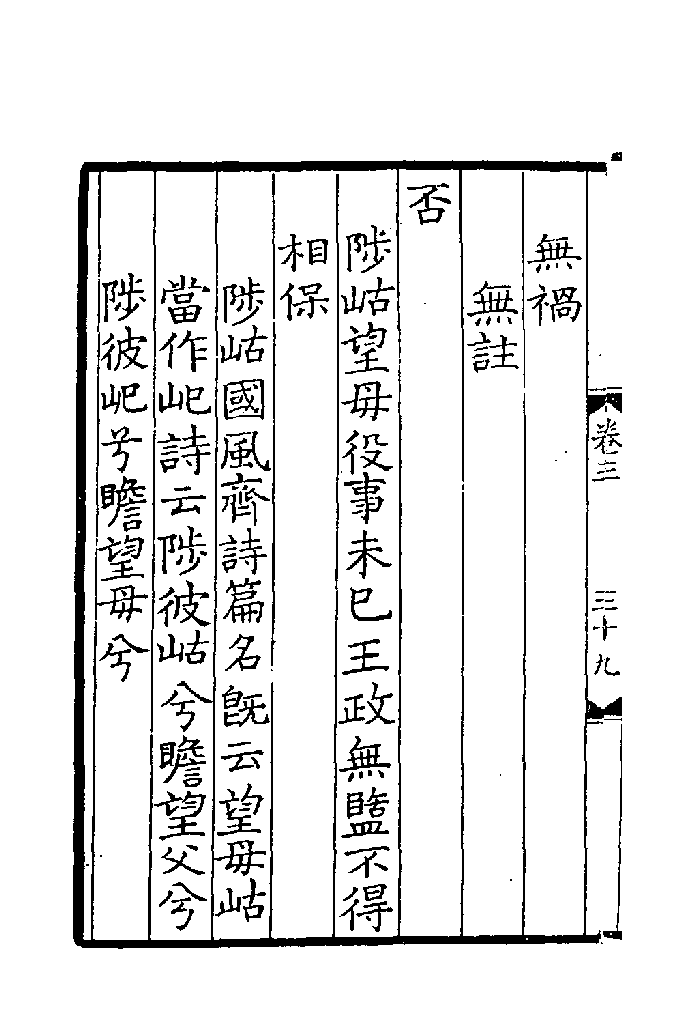 無禍
無註
否
陟岵望母役事未已王政無盬不得
相保
陟岵國風齊詩篇名旣云望母岵
當作屺詩云陟彼岵兮瞻望父兮
陟彼屺兮瞻望母兮
卷三
三十九